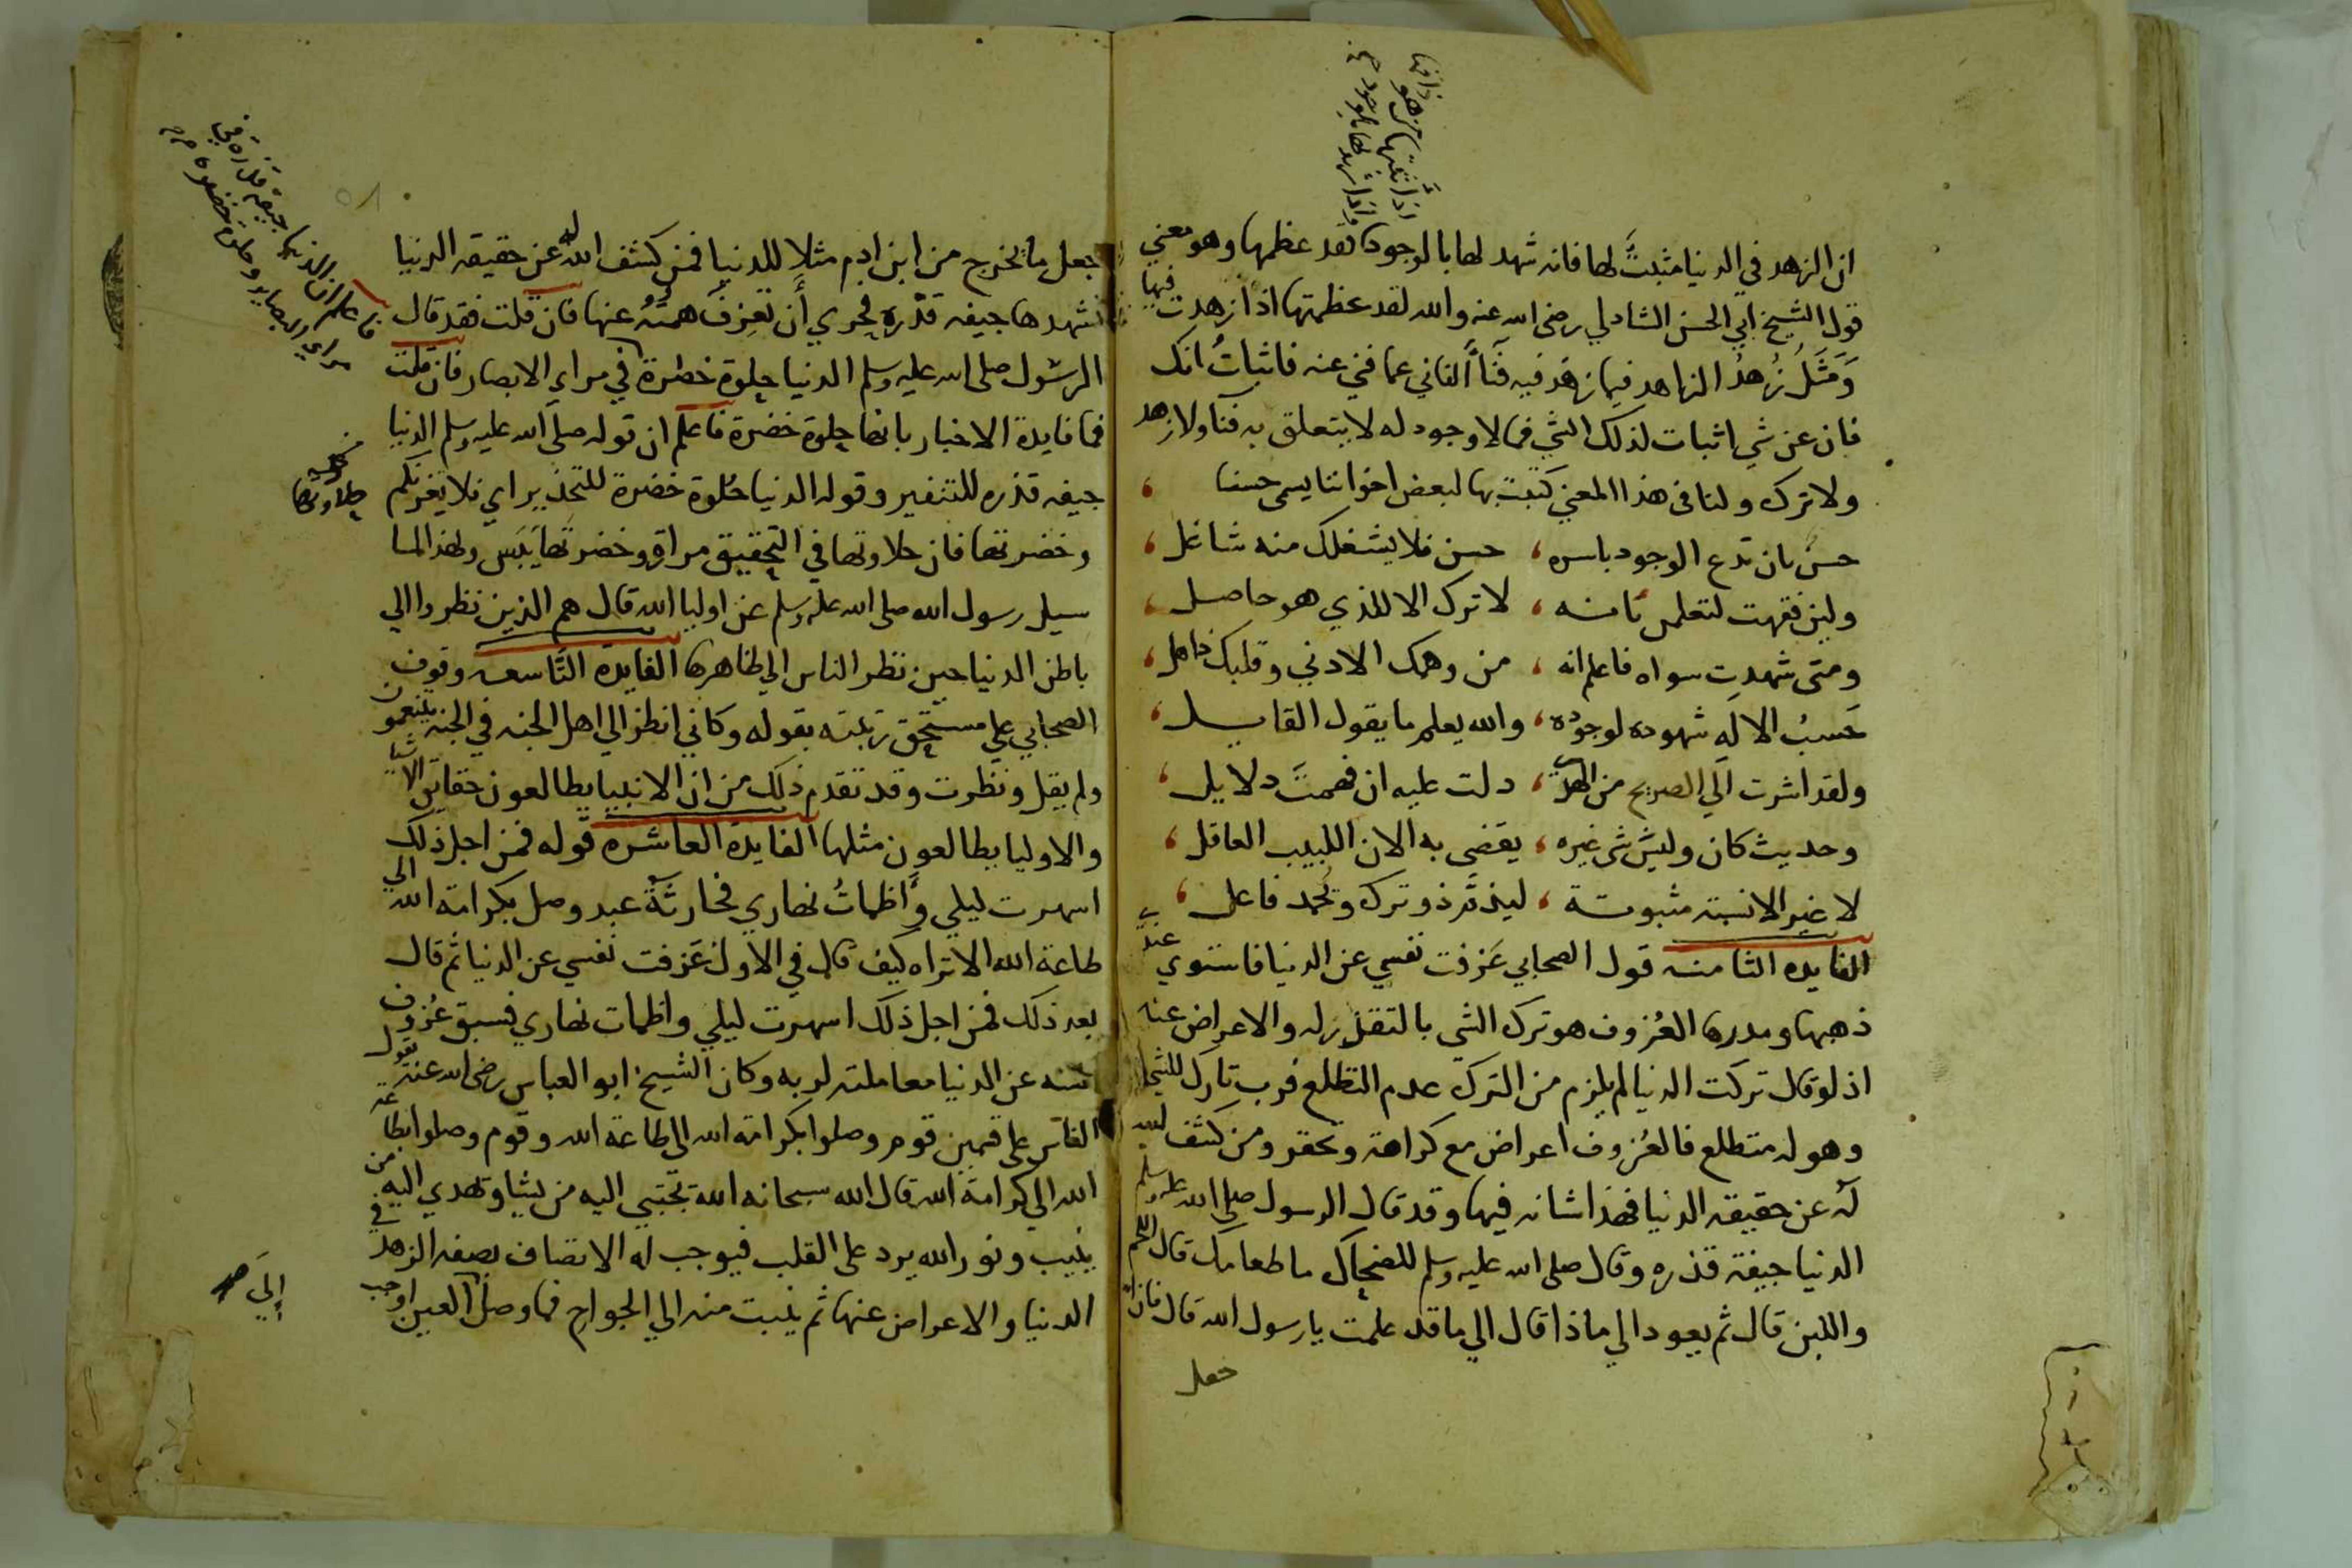 ان الزهد في الدنيا مثبتٌ لها فانه شهد لها بالوجود فقد عظمها وهو معني
قول الشيخ ابي الحسن الشاذلي رضى الله عنه والله لقد عظمتها اذا زهدت فيها
وَمَثَلُ زُهدُ الزاهد فيما زهد فيه فَنَآءُ الفاني عما فني عنه فاثباتُ انك
فان عن شي اثبات لذلك الشي فما لا وجود له لا يتعلق به فنا ولا زهد
ولا ترك ولنا في هذا المعني كتبت بها لبعض اخواننا يسمى حسنا
حسنٌ بان تدع الوجود باسره ، حسن فلا يشغلك منه شاغل ،
ولين فقهت لتعلمن بانه ، لا ترك الا للذي هو حاصل ،
ومتى شهدت سواه فاعلم انه ، من وهمك الادني وقلبك ذاهل ،
حَسبُ الالَه شهوده لوجوده ، والله يعلم ما يقول القايل ،
ولقد اشرت الَي الصريح من الهدَي ، دلت عليه ان فهمتَ دلايل ،
وحديث كان وليسَ شى غيره ، يقضى به الان اللبيب العاقل ،
لا غير الا نسبة مثبوتة ، ليذمَّ ذو ترك ويُحمد فاعل ،
الفايدة الثامنه قول الصحابي عَزفت نفسي عن الدنيا فاستوي عندي
ذهبها ومدرها العُزوف هو ترك الشي بالتقذر له والاعراض عنه
اذ لو قال تركت الدنيا لم يلزم من الترك عدم التطلع فرب تارك للشي
وهو له متطلع فالعُزوف اعراض مع كراهة وتحقر ومن كشف الله
له عن حقيقة الدنيا فهذا شانه فيها وقد قال الرسول صلى الله عليه وسلم
الدنيا جيفة قذره وقال صلى الله عليه وسلم للضحاك ما طعامك قال اللحم
واللبن قال ثم يعود الي ماذا قال الي ما قد علمت يا رسول الله قال فان الله
جعل
جعل ما يخرج من ابن ادم مثلا للدنيا فمن كشف الله له عن حقيقة الدنيا
فشهدها جيفه قذره فحري أن تعزفَ همتُهُ عنها فان قلت فقد قال
الرسول صلى الله عليه وسلم الدنيا حلوة خضرة في مراي الابصار فان قلت
فما فايدة الاخبار بانها حلوة خضرة فاعلم ان قوله صلى الله عليه وسلم الدنيا
جيفه قذره للتنفير وقوله الدنيا حُلوة خضرة للتحذير اي فلا يغرنكم
وخضرتها فان حلاوتها في التحقيق مرارة وخضرتها يَبَس ولهذا لما
سيل رسول الله صلى الله عليه وسلم عن اوليا الله قال هم الذين نظروا الي
باطن الدنيا حين نظر الناس الي ظاهرها الفايدة التاسعه وقوف
الصحابي علي مستحق رتبته بقوله وكاني انظر الي اهل الجنه في الجنه يتنعمون
ولم يقل ونظرت وقد تقدم ذلك من ان الانبيا يطالعون حقايق الاشيا
والاوليا يطالعون مثلها الفايدة العاشره قوله فمن اجل ذلك
اسهرت ليلي وَأظمأتُ نهاري فحارثةُ عبد وصل بكرامة الله الي
طاعة الله الا تراه كيف قال في الاول عَزفت نفسي عن الدنيا ثم قال
بعد ذلك فمن اجل ذلك اسهرت ليلي واظمات نهاري فسبق عُزوف
نفسه عن الدنيا معاملته لربه وكان الشيخ ابو العباس رضى الله عنه يقول
الناس على قسمين قوم وصلوا بكرامة الله الي طاعة الله وقوم وصلوا بطاعة
الله الي كرامة الله قال الله سبحانه الله يجتبي اليه من يشا ويهدي اليه من
ينيب ونور الله يرد على القلب فيوجب له الاتصاف بصفه الزهد في
الدنيا والاعراض عنها ثم ينبت منه الي الجوارح فما وصل الَي العين اوجب
فاعلم ان الدنيا جيفة قذره في
مراي البصاير وحلوة خضرة
حلاوتها